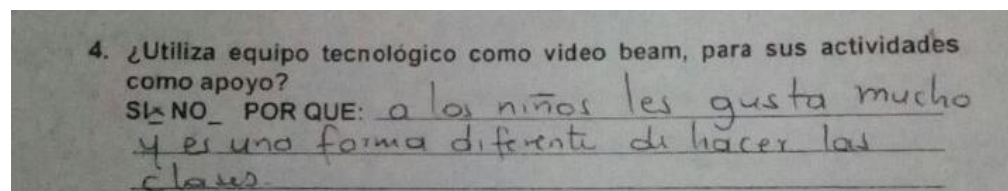 4. ¿Utiliza equipo tecnológico como video beam, para sus actividades
como apoyo?
SI_ NO_ POR QUE: a los niños les gusta mucho
y es una forma diferente de hacer las
clases.